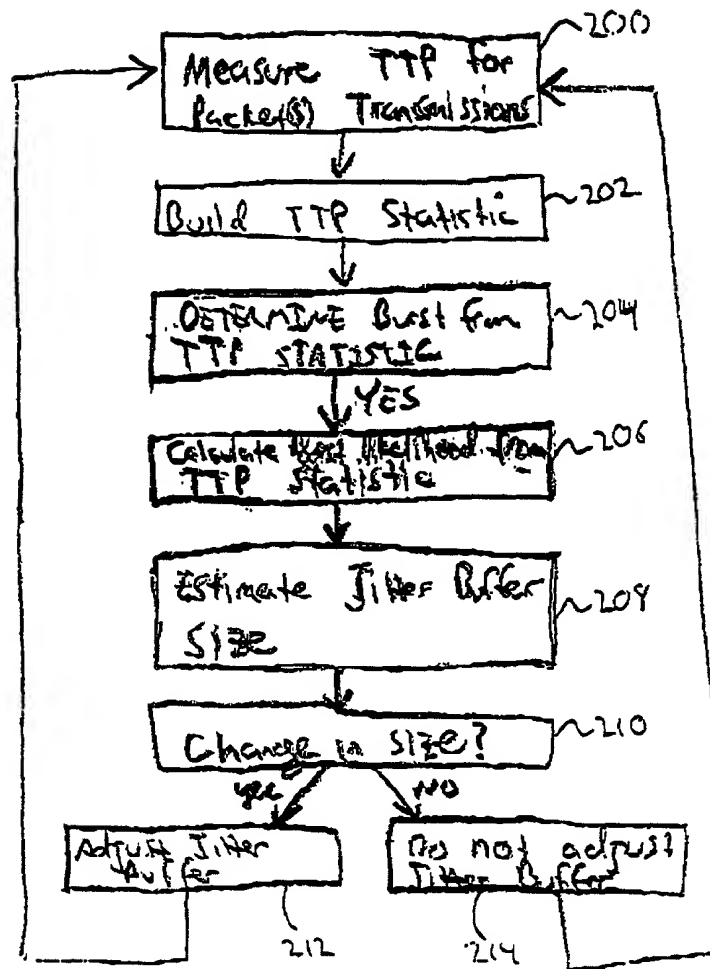 200
Measure TTP for
Packet(s) Transmissions
Build TTP Statistic
202
DETERMINE Burst from
TTP STATISTIC
204
YES
Calculate Max Likelihood from
TTP Statistic
206
Estimate Jitter Buffer
Size
208
Change in Size?
210
yes
NO
Adjust Jitter
Buffer
Do not adjust
Jitter Buffer
212
214